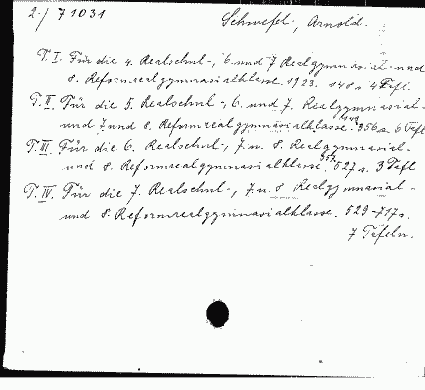 2./ 71031
Schwefel, Arnold.
T. I. Für die 4. Realschul-, 6. und 7 Realgymnasial- und
8. Reformrealgymnasialklasse. 1923. 148 s. 4 Tafl.
T. II. Für die 5. Realschul-, 6. und 7. Realgymnasial-
und 7. und 8. Reformrealgymnasialklasse. 149 356 s. 6 Tafl
T. III. Für die 6. Realschul-, 7. u. 8. Realgymnasial-
und 8. Reformrealgymnasialklasse. 357 527 s. 3 Tafl
T. IV. Für die 7. Realschul-, 7. u. 8 Realgymnasial-
und 8. Reformrealgymnasialklasse. 529-717 s.
7 Tafeln.